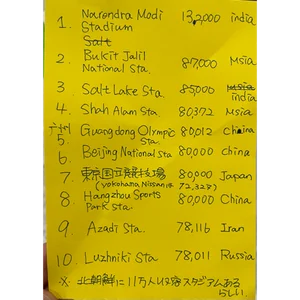 1. Narendra Modi Stadium 132,000 india
Salt
2. Bukit Jalil National Sta. 87,000 Msia
3. Salt Lake Sta. 85,000 Msia india
4. Shah Alam Sta. 80,372 Msia
广州 5. Guangdong Olympic Sta. 80,012 China
6. Beijing National Sta 80,000 China
7. 東京国立競技場 80,000 Japan
(yokohama Nissan is 72,327)
8. Hangzhou Sports Park Sta. 80,000 China
9. Azadi Sta. 78,116 Iran
10. Luzhniki Sta. 78,011 Russia
※ 北朝鮮に11万人収容スタジアムある
らしい